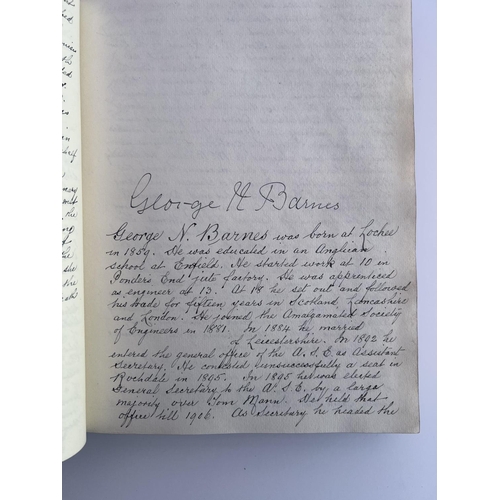 George N Barnes
George N. Barnes was born at Lochee
in 1859. He was educated in an Anglican
school at Enfield. He started work at 10 in
Ponders End jute factory. He was apprenticed
as engineer at 13. At 18 he set out and followed
his trade for fifteen years in Scotland Lancashire
and London. He joined the Amalgamated Society
of Engineers in 1881. In 1884 he married
of Leicestershire. In 1892 he
entered the general office of the A.S.E as Assistant
Secretary. He contested unsuccessfully a seat in
Rochdale in 1895. In 1895 he was elected
General Secretary to the A.S.E. by a large
majority over Tom Mann. He held that
office till 1906. As Secretary he headed the